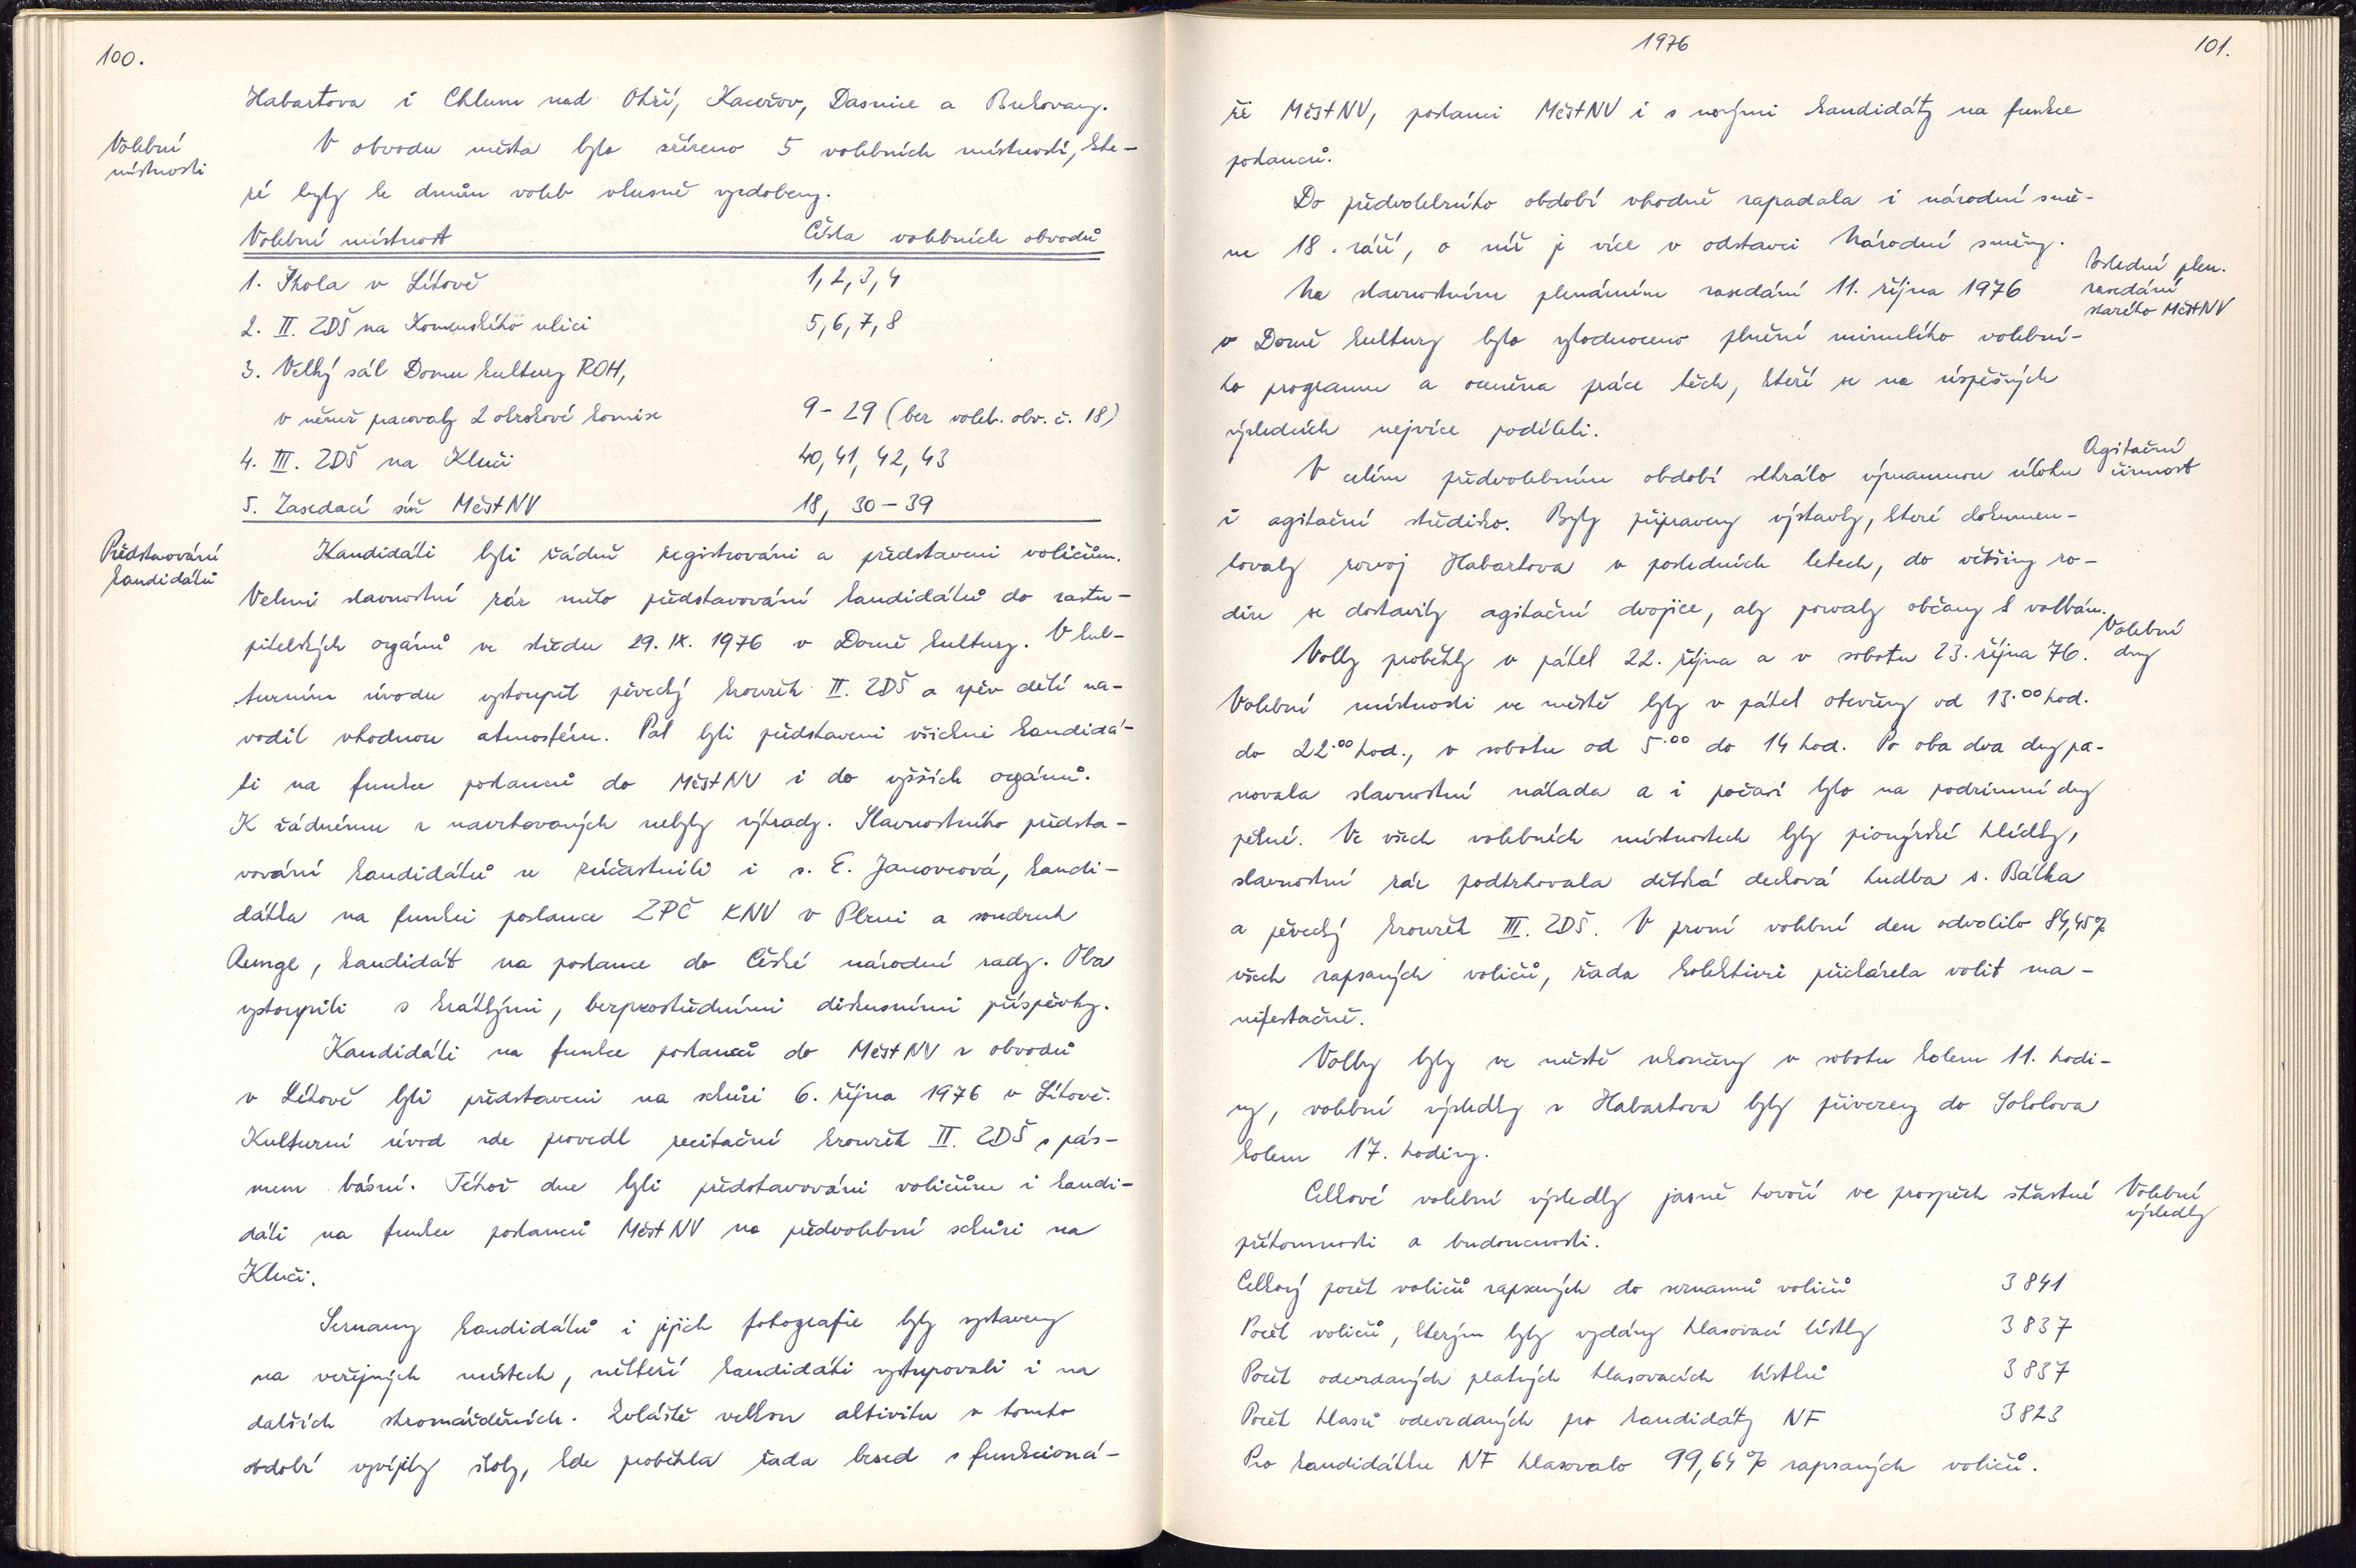 100.
Habartova i Chlum nad Ohří, Kaceřov, Dasnice a Bukovany.
Volební
místnosti
V obvodu města bylo zřízeno 5 volebních místností, kte-
ré byly ke dnům voleb vkusně vyzdobeny.
Volební místnost Čísla volebních obvodů
1. Škola v Lítově 1, 2, 3, 4
2. II. ZDŠ na Komenského ulici 5, 6, 7, 8
3. Velký sál Domu kultury ROH,
v němž pacovaly 2 okrskové komise 9 - 29 (bez voleb. obv. č. 18)
4. III. ZDŠ na Kluči 40, 41, 42, 43
5. Zasedací síň MěstNV 18, 30 - 39
Představování
kandidátů
Kandidáti byli řádně registrováni a představeni voličům.
Velmi slavnostní ráz mělo představování kandidátů do zastu-
pitelských orgánů ve středu 29. IX. 1976 v Domě kultury. V kul-
turním úvodu vystoupil pěvecký kroužek II. ZDŠ a zpěv dětí na-
vodil vhodnou atmosféru. Pak byli představeni všichni kandidá-
ti na funkce poslanců do MěstNV i do vyšších orgánů.
K žádnému z navrhovaných nebyly výhrady. Slavnostního předsta-
vování kandidátů se zúčastnili i s. E. Janovcová, kandi-
dátka na funkci poslance ZPČ KNV v Plzni a soudruh
Runge, kandidát na poslance do České národní rady. Oba
vystoupili s krátkými, bezprostředními diskusními příspěvky.
Kandidáti na funkce poslanců do MěstNV z obvodů
v Lítově byli představeni na schůzi 6. října 1976 v Lítově.
Kulturní úvod zde provedl recitační kroužek II. ZDŠ s pás-
mem básní. Téhož dne byli představováni voličům i kandi-
dáti na funkce poslanců MěstNV na předvolební schůzi na
Kluči.
Seznamy kandidátů i jejich fotografie byly vystaveny
na veřejných místech, někteří kandidáti vystupovali i na
dalších shromážděních. Zvláště velkou aktivitu v tomto
období vyvíjely školy, kde proběhla řada besed s funkcioná-
1976
101.
ři MěstNV, poslanci MěstNV i s novými kandidáty na funkce
poslanců.
Do předvolebního období vhodně zapadala i národní smě-
na 18. září, o níž je více v odstavci Národní směny.
Poslední plen.
zasedání
starého MěstNV
Na slavnostním plenárním zasedání 11. října 1976
v Domě kultury bylo zhodnoceno plnění minulého volební-
ho programu a oceněna práce těch, kteří se na úspěšných
výsledcích nejvíce podíleli.
Agitační
činnost
V celém předvolebním období sehrálo významnou úlohu
i agitační středisko. Byly připraveny výstavky, které dokumen-
tovaly rozvoj Habartova v posledních letech, do většiny ro-
din se dostavily agitační dvojice, aby pozvaly občany k volbám.
Volební
dny
Volby proběhly v pátek 22. října a v sobotu 23. října 76.
Volební místnosti ve městě byly v pátek otevřeny od 13.00 hod.
do 22.00 hod., v sobotu od 5.00 do 14 hod. Po oba dva dny pa-
novala slavnostní nálada a i počasí bylo na podzimní dny
pěkné. Ve všech volebních místnostech byly pionýrské hlídky,
slavnostní ráz podtrhovala dětská dechová hudba s. Bálka
a pěvecký kroužek III. ZDŠ. V první volební den odvolilo 84,45%
všech zapsaných voličů, řada kolektivů přicházela volit ma-
nifestačně.
Volby byly ve městě ukončeny v sobotu kolem 11. hodi-
ny, volební výsledky z Habartova byly přivezeny do Sokolova
kolem 17. hodiny.
Volební
výsledky
Celkové volební výsledky jasně hovoří ve prospěch šťastné
přítomnosti a budoucnosti.
Celkový počet voličů zapsaných do seznamů voličů 3841
Počet voličů, kterým byly vydány hlasovací lístky 3837
Počet odevzdaných platných hlasovacích lístků 3837
Počet hlasů odevzdaných pro kandidáty NF 3823
Pro kandidátku NF hlasovalo 99,64% zapsaných voličů.